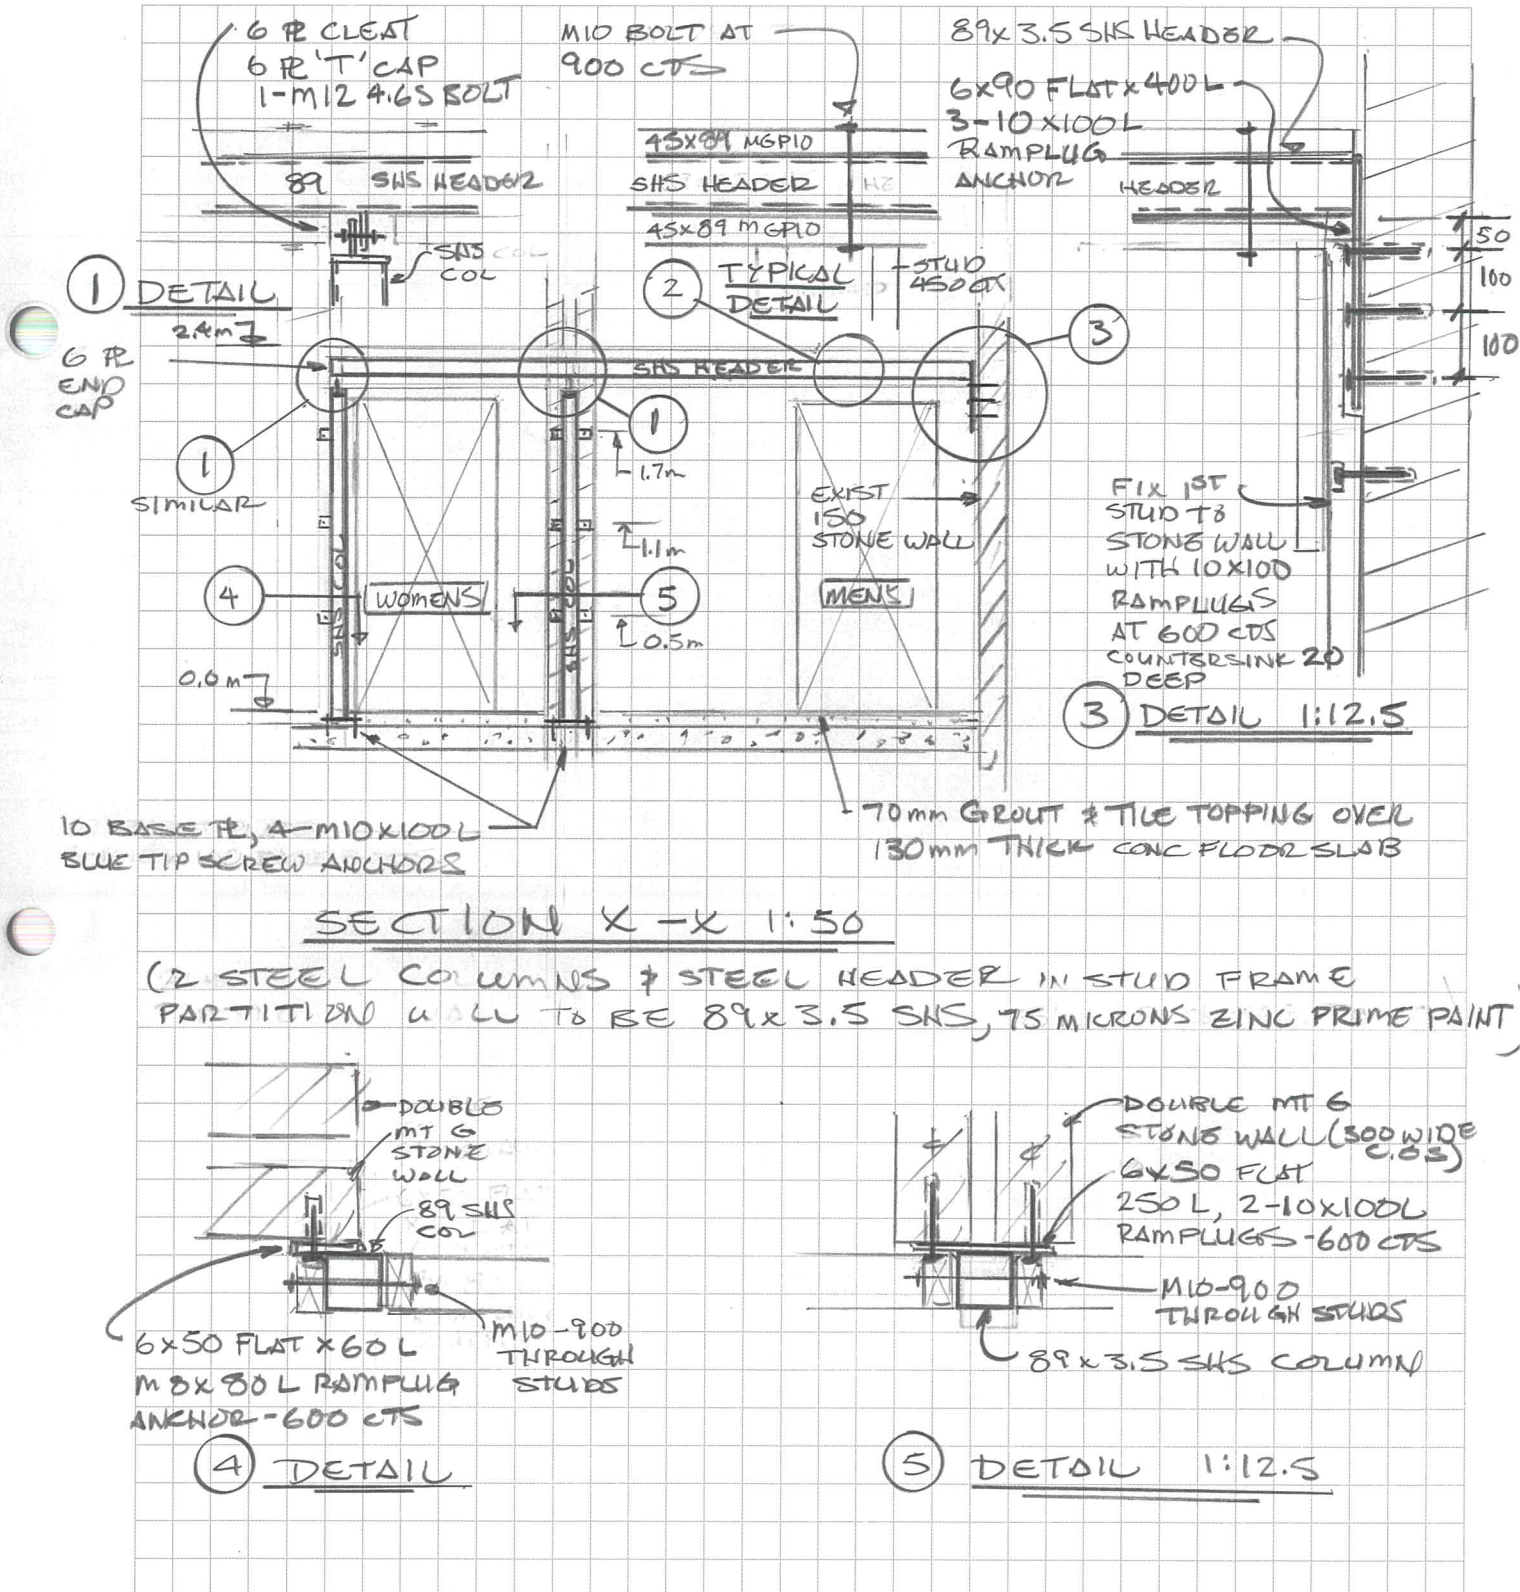 6 PL CLEAT
6 PL 'T' CAP
1-M12 4.6S BOLT
89 SHS HEADER
SHS
COL
1 DETAIL
M10 BOLT AT
900 CTS
45x89 MGP10
SHS HEADER
45x89 MGP10
2 TYPICAL
DETAIL
STUD
450 CTS
89x3.5 SHS HEADER
6x90 FLAT x 400L
3-10x100L
RAMPLUG
ANCHOR
HEADER
50
100
100
FIX 1ST
STUD TO
STONE WALL
WITH 10x100
RAMPLUGS
AT 600 CTS
COUNTERSINK 20
DEEP
3 DETAIL 1:12.5
2.4m
6 PL
END
CAP
SHS HEADER
3
1
1
SIMILAR
1.7m
1.1m
0.5m
EXIST
150
STONE WALL
4
SHS COL
WOMENS
SHS COL
5
MENS
0.0m
10 BASE PL, 4-M10x100L
BLUE TIP SCREW ANCHORS
70mm GROUT & TILE TOPPING OVER
130mm THICK CONC FLOOR SLAB
SECTION X-X 1:50
(2 STEEL COLUMNS & STEEL HEADER IN STUD FRAME
PARTITION WALL TO BE 89x3.5 SHS, 75 MICRONS ZINC PRIME PAINT)
DOUBLE
MT G
STONE
WALL
89 SHS
COL
6x50 FLAT x 60L
M8x80L RAMPLUG
ANCHOR-600 CTS
M10-900
THROUGH
STUDS
4 DETAIL
DOUBLE MT G
STONE WALL (300 WIDE
C.O.S)
6x50 FLAT
250L, 2-10x100L
RAMPLUGS-600 CTS
M10-900
THROUGH STUDS
89x3.5 SHS COLUMN
5 DETAIL 1:12.5